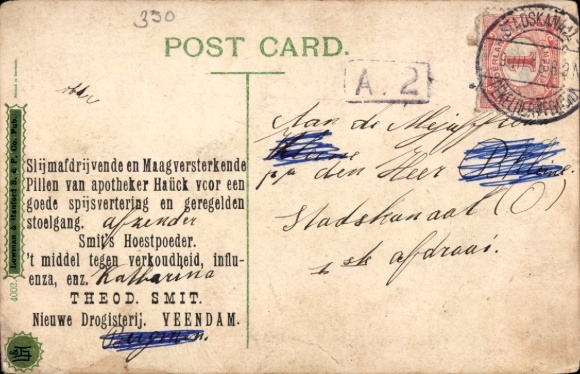 330
POST CARD.
A. 2
STADSKANAAL
NEDERLAND
1
Slijmafdrijvende en Maagversterkende
Pillen van apotheker Haück voor een
goede spijsvertering en geregelden
stoelgang. afzender
Smit's Hoestpoeder.
't middel tegen verkoudheid, influ-
enza, enz. Katharina
THEOD. SMIT.
Nieuwe Drogisterij. VEENDAM.
Aan de Mejuffrouw
p/a den Heer
Stadskanaal (O)
1ste afdraai.